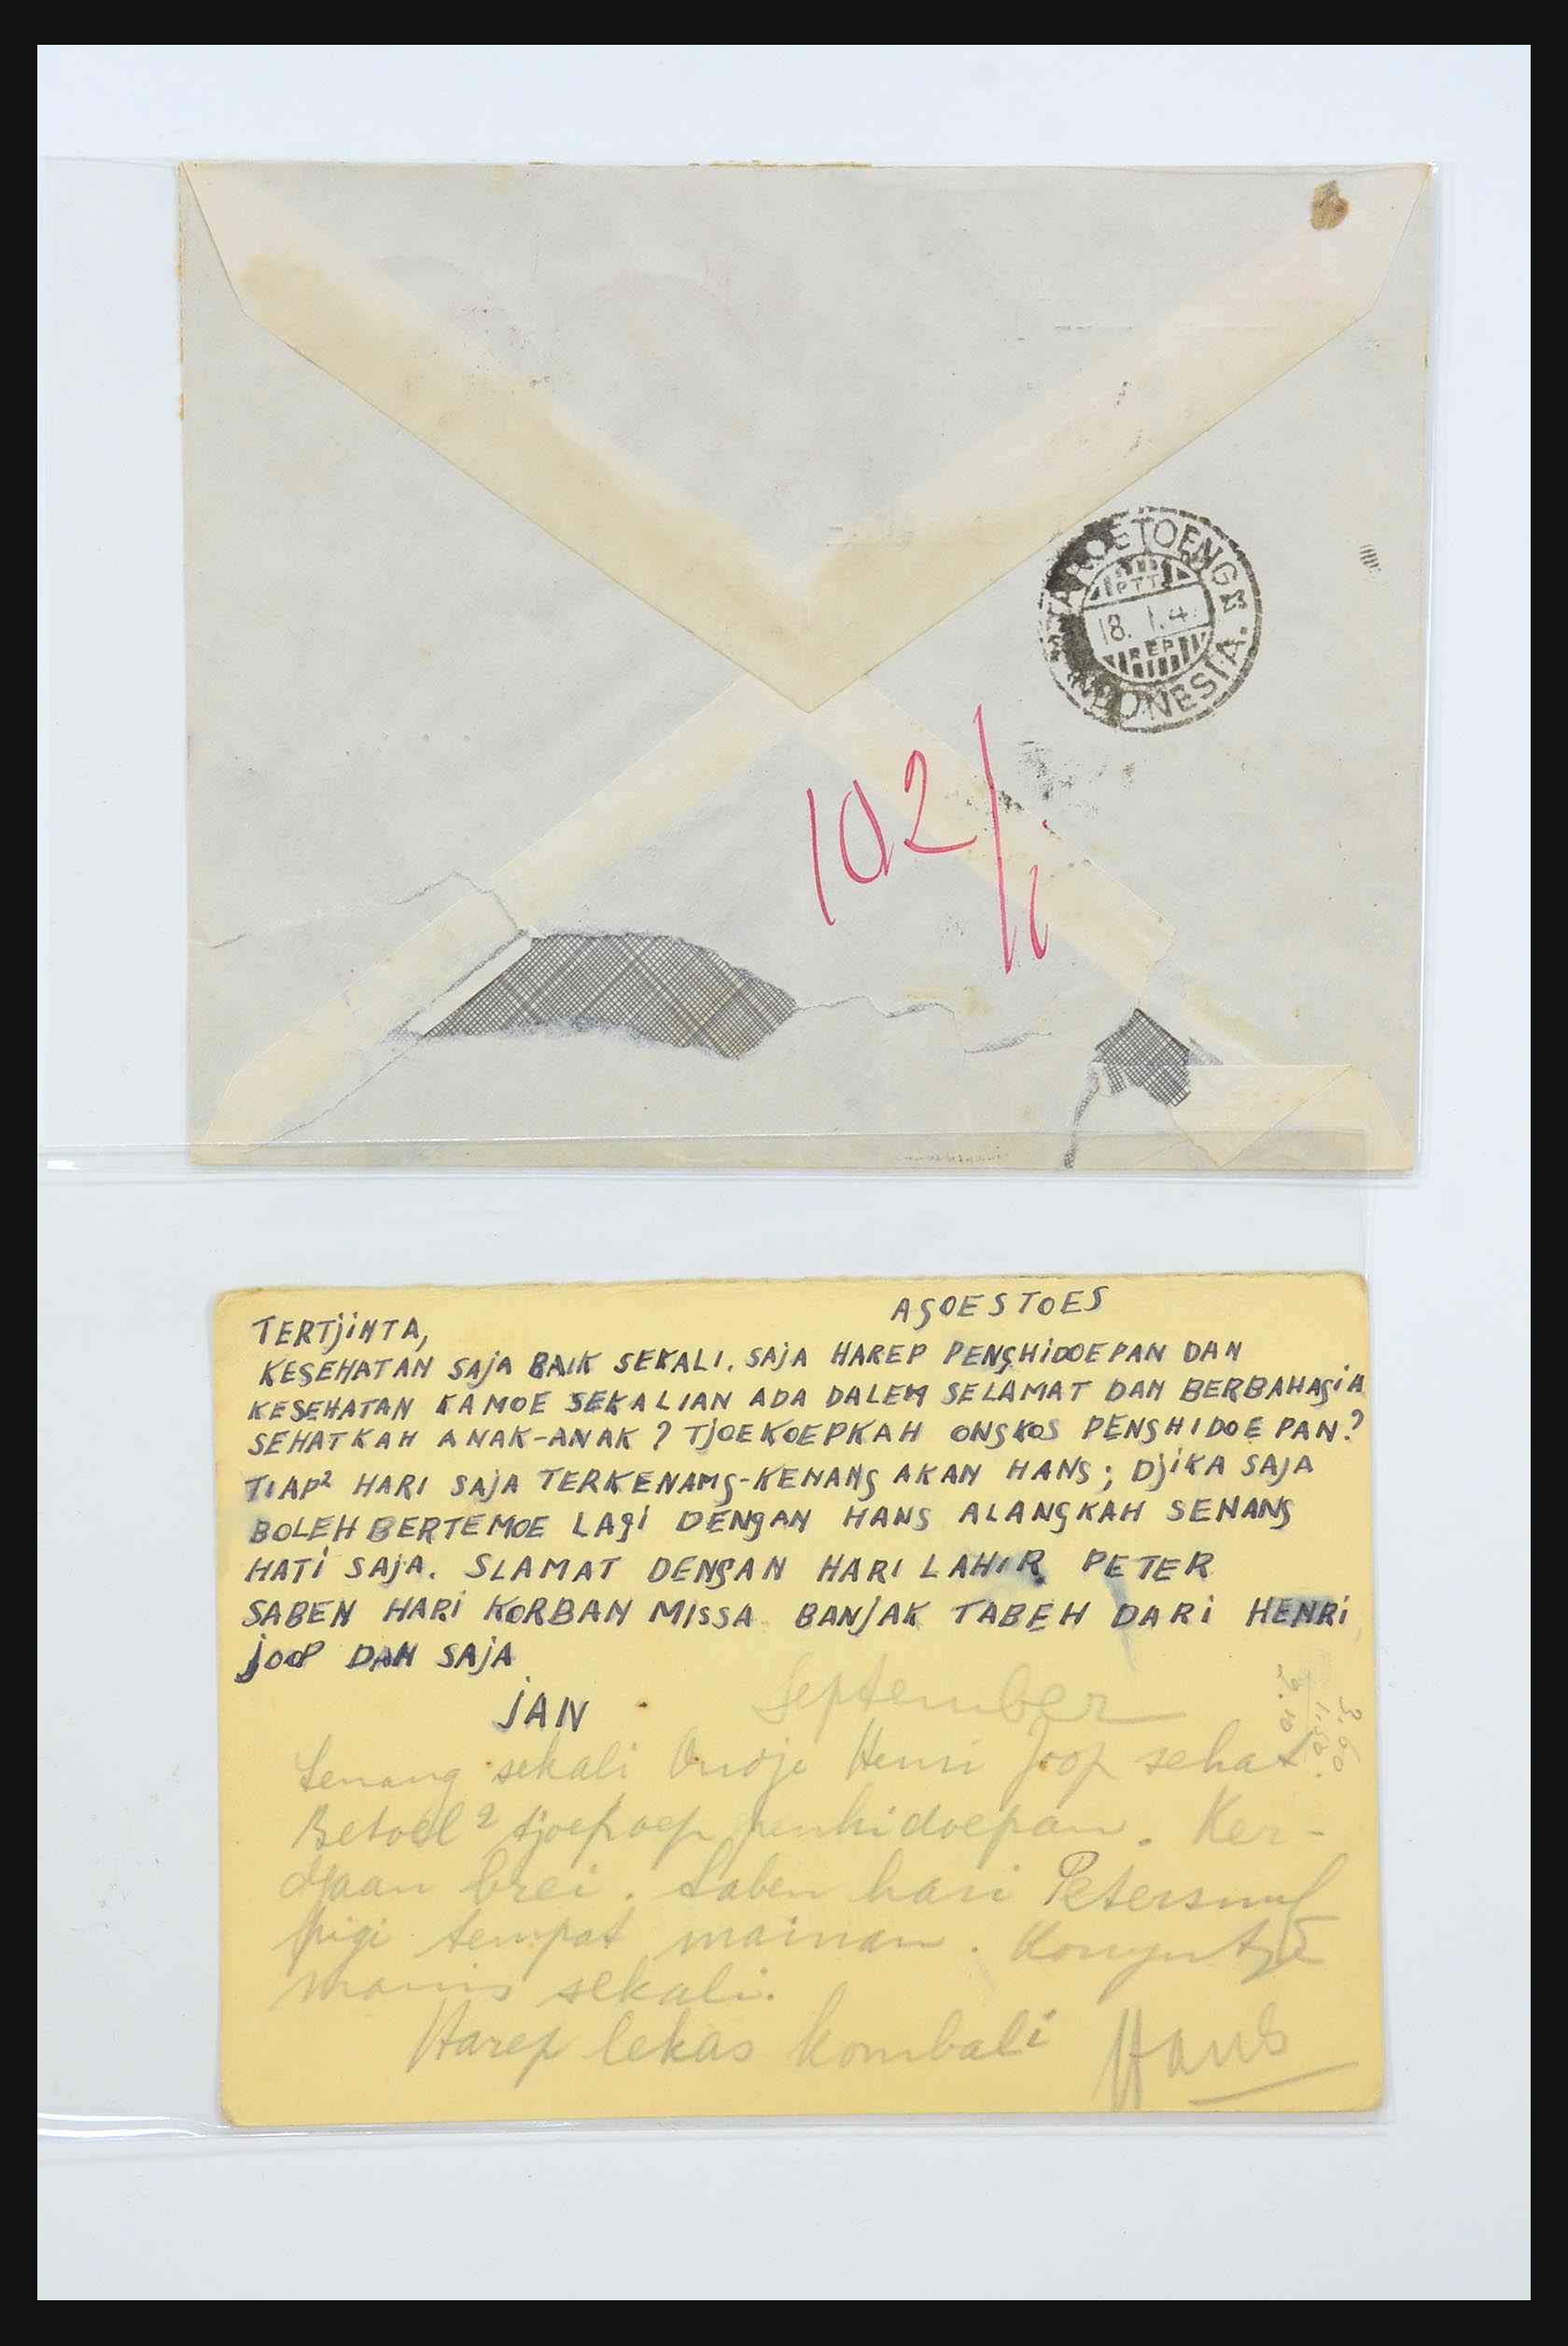 TAROETOENG
PTT
18. 1.4
REP
INDONESIA
102/
AGOESTOES
TERTJINTA,
KESEHATAN SAJA BAIK SEKALI. SAJA HAREP PENGHIDOEPAN DAN
KESEHATAN KAMOE SEKALIAN ADA DALEM SELAMAT DAN BERBAHAGIA
SEHATKAH ANAK-ANAK? TJOEKOEPKAH ONGKOS PENGHIDOEPAN?
TIAP² HARI SAJA TERKENANG-KENANG AKAN HANS; DJIKA SAJA
BOLEH BERTEMOE LAGI DENGAN HANS ALANGKAH SENANG
HATI SAJA. SLAMAT DENGAN HARI LAHIR PETER
SABEN HARI KORBAN MISSA BANJAK TABEH DARI HENRI
JOOP DAN SAJA
JAN
September
3.60
1.50
5.10
Senang sekali Henri Joop sehat
Betoel² tjoekoep penhidoepan. Ker-
djaan brei. Saben hari Peter
pigi tempat mainan.
manis sekali.
Harep lekas kombali Hans